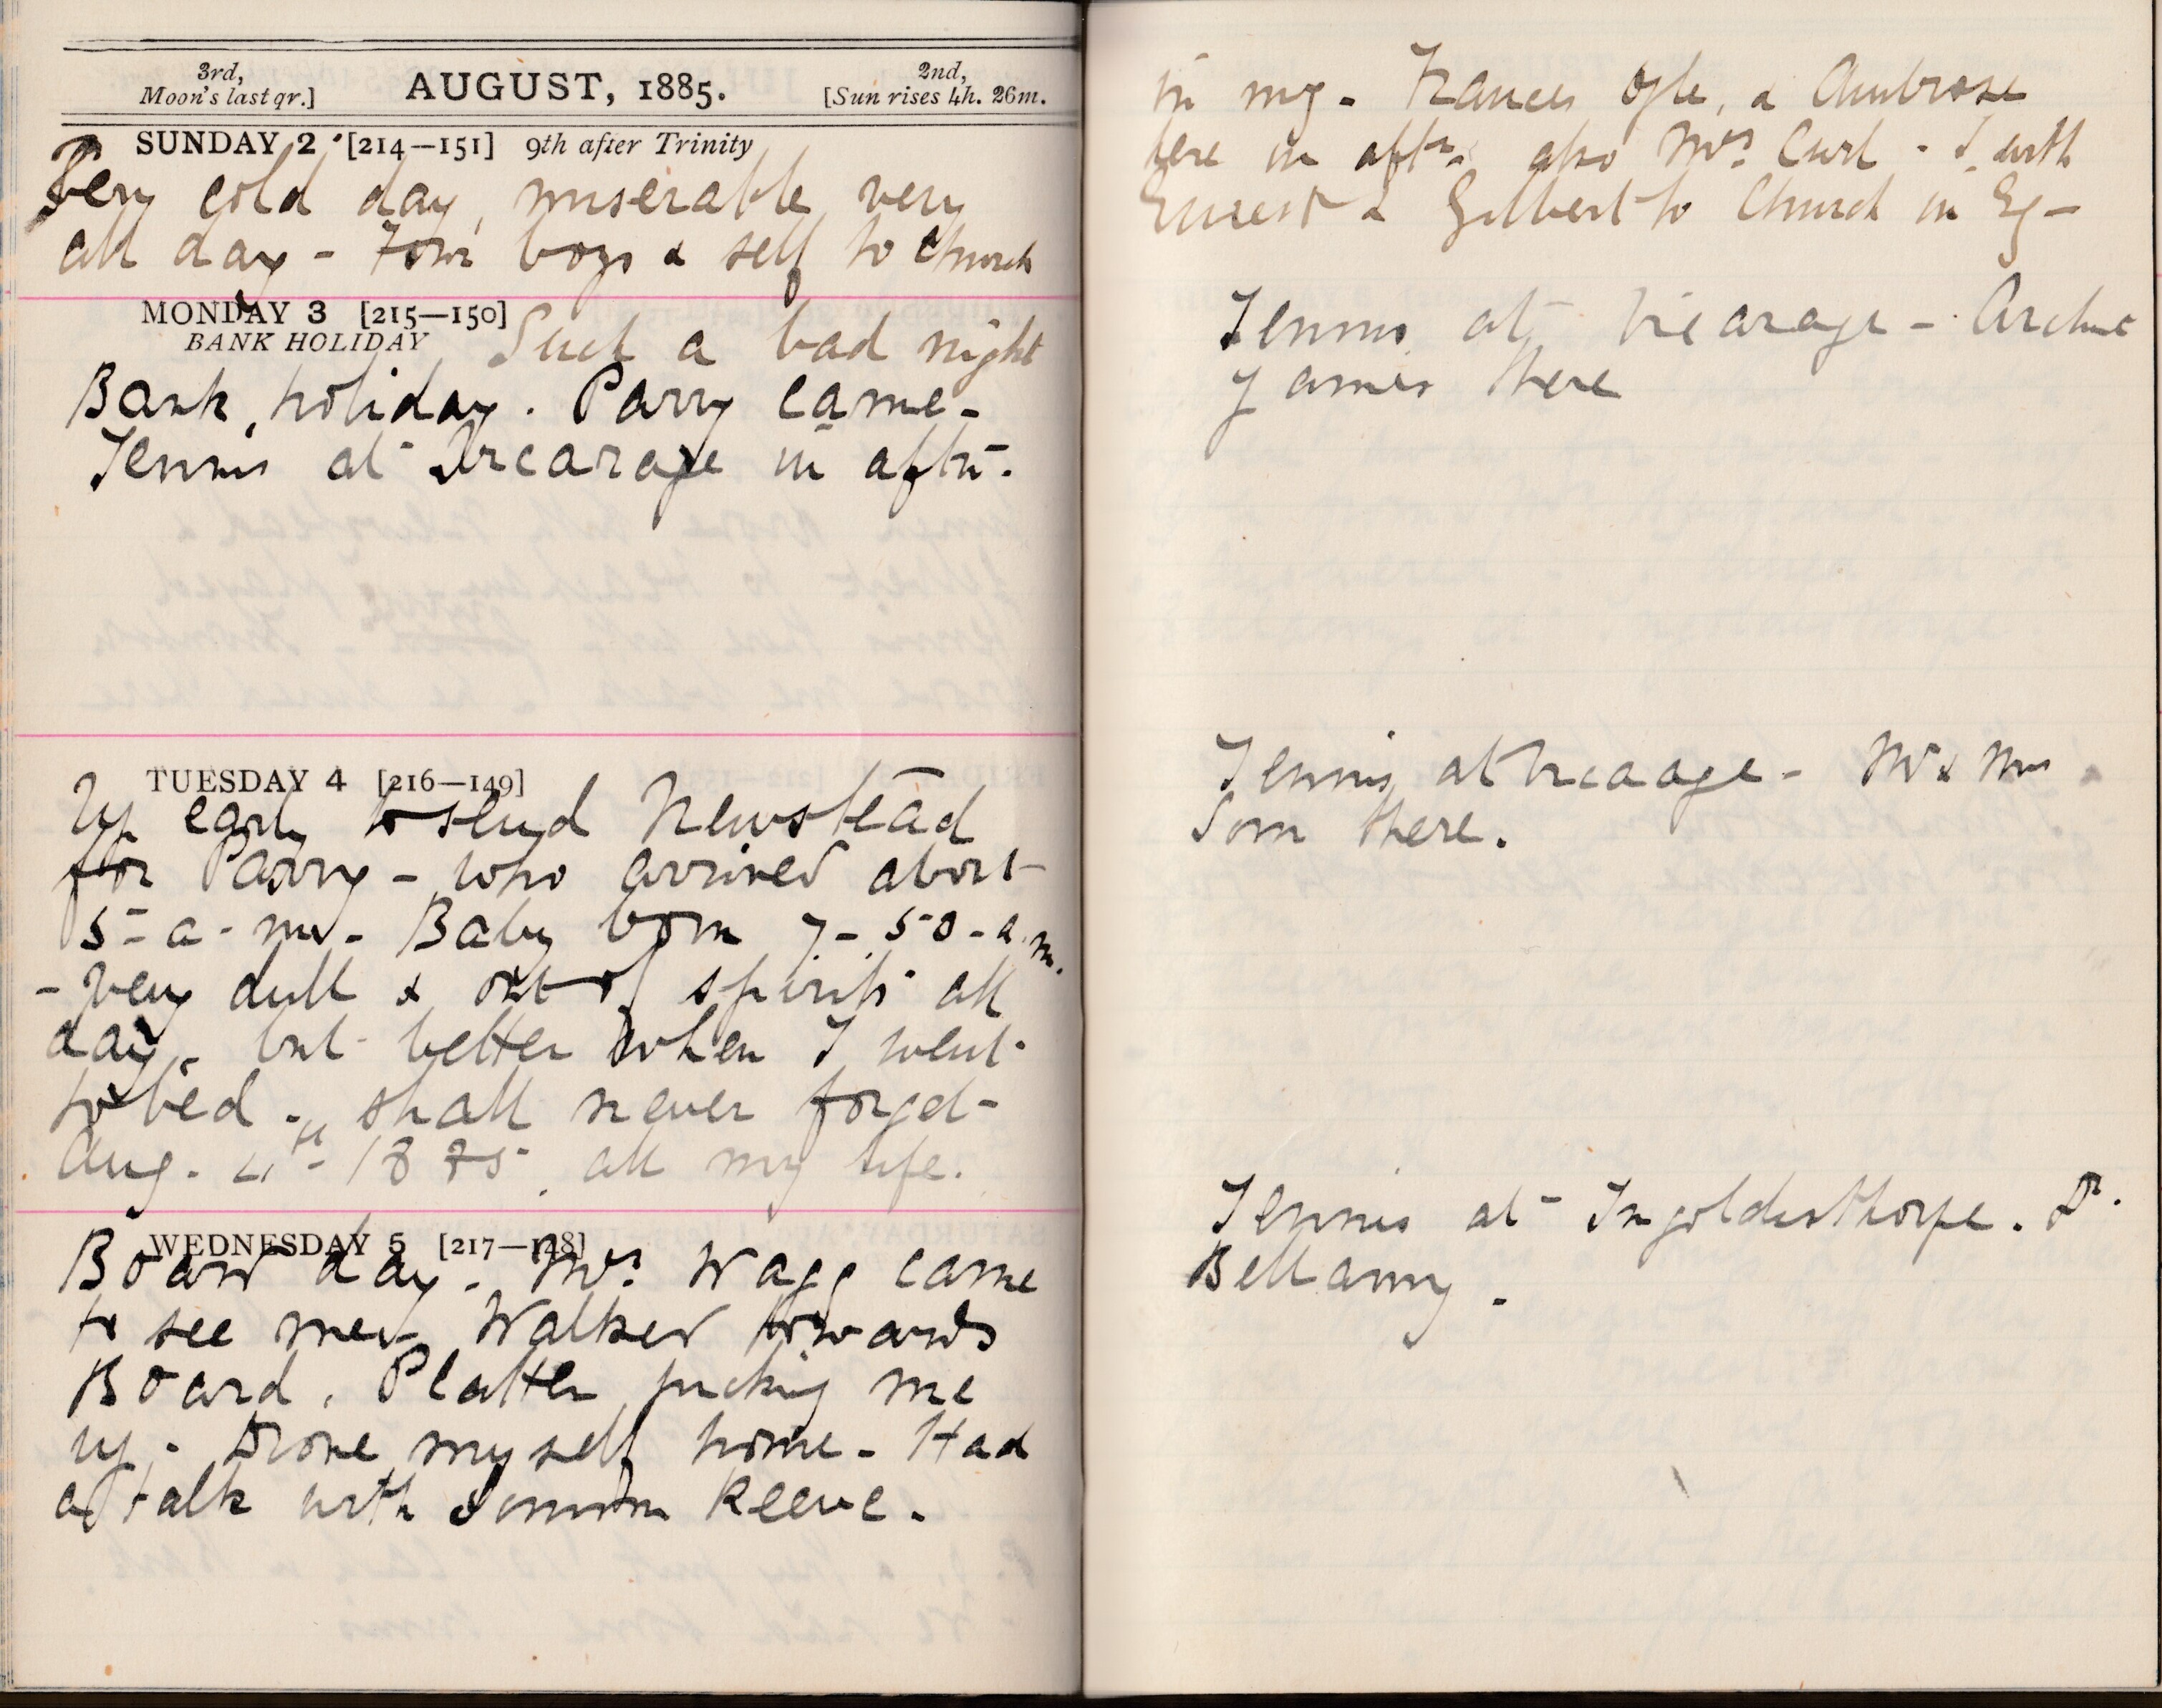 3rd,
Moon's last qr.]
AUGUST, 1885.
2nd,
[Sun rises 4h. 26m.
SUNDAY 2 [214—151] 9th after Trinity
Very cold day, miserable very
all day - Four boys & self to Church
MONDAY 3 [215—150]
BANK HOLIDAY Such a bad night
Bank holiday. Parry came -
Tennis at Vicarage in aftn.
TUESDAY 4 [216—149]
Up early to send Newstead
for Parry - who arrived about
5 - a - m - Baby born 7 - 50 - a.m.
- very dull & out of spirits all
day - but better when I went
to bed - shall never forget
Aug. 4th 1885. all my life.
WEDNESDAY 5 [217—148]
Board day - Mrs. Wagg came
to see me - Walked towards
Board. Platten picking me
up - Drove myself home - Had
a talk with Reeve.
in mg - Frances Ogle, & Ambrose
here in aftn. also Mrs. Curl - I with
Ernest & Gilbert to Church in Eg -
Tennis at Vicarage -
James there
Tennis at Vicarage - Mr & Mrs
Som there.
Tennis at Ingoldisthorpe. Dr.
Bellamy.